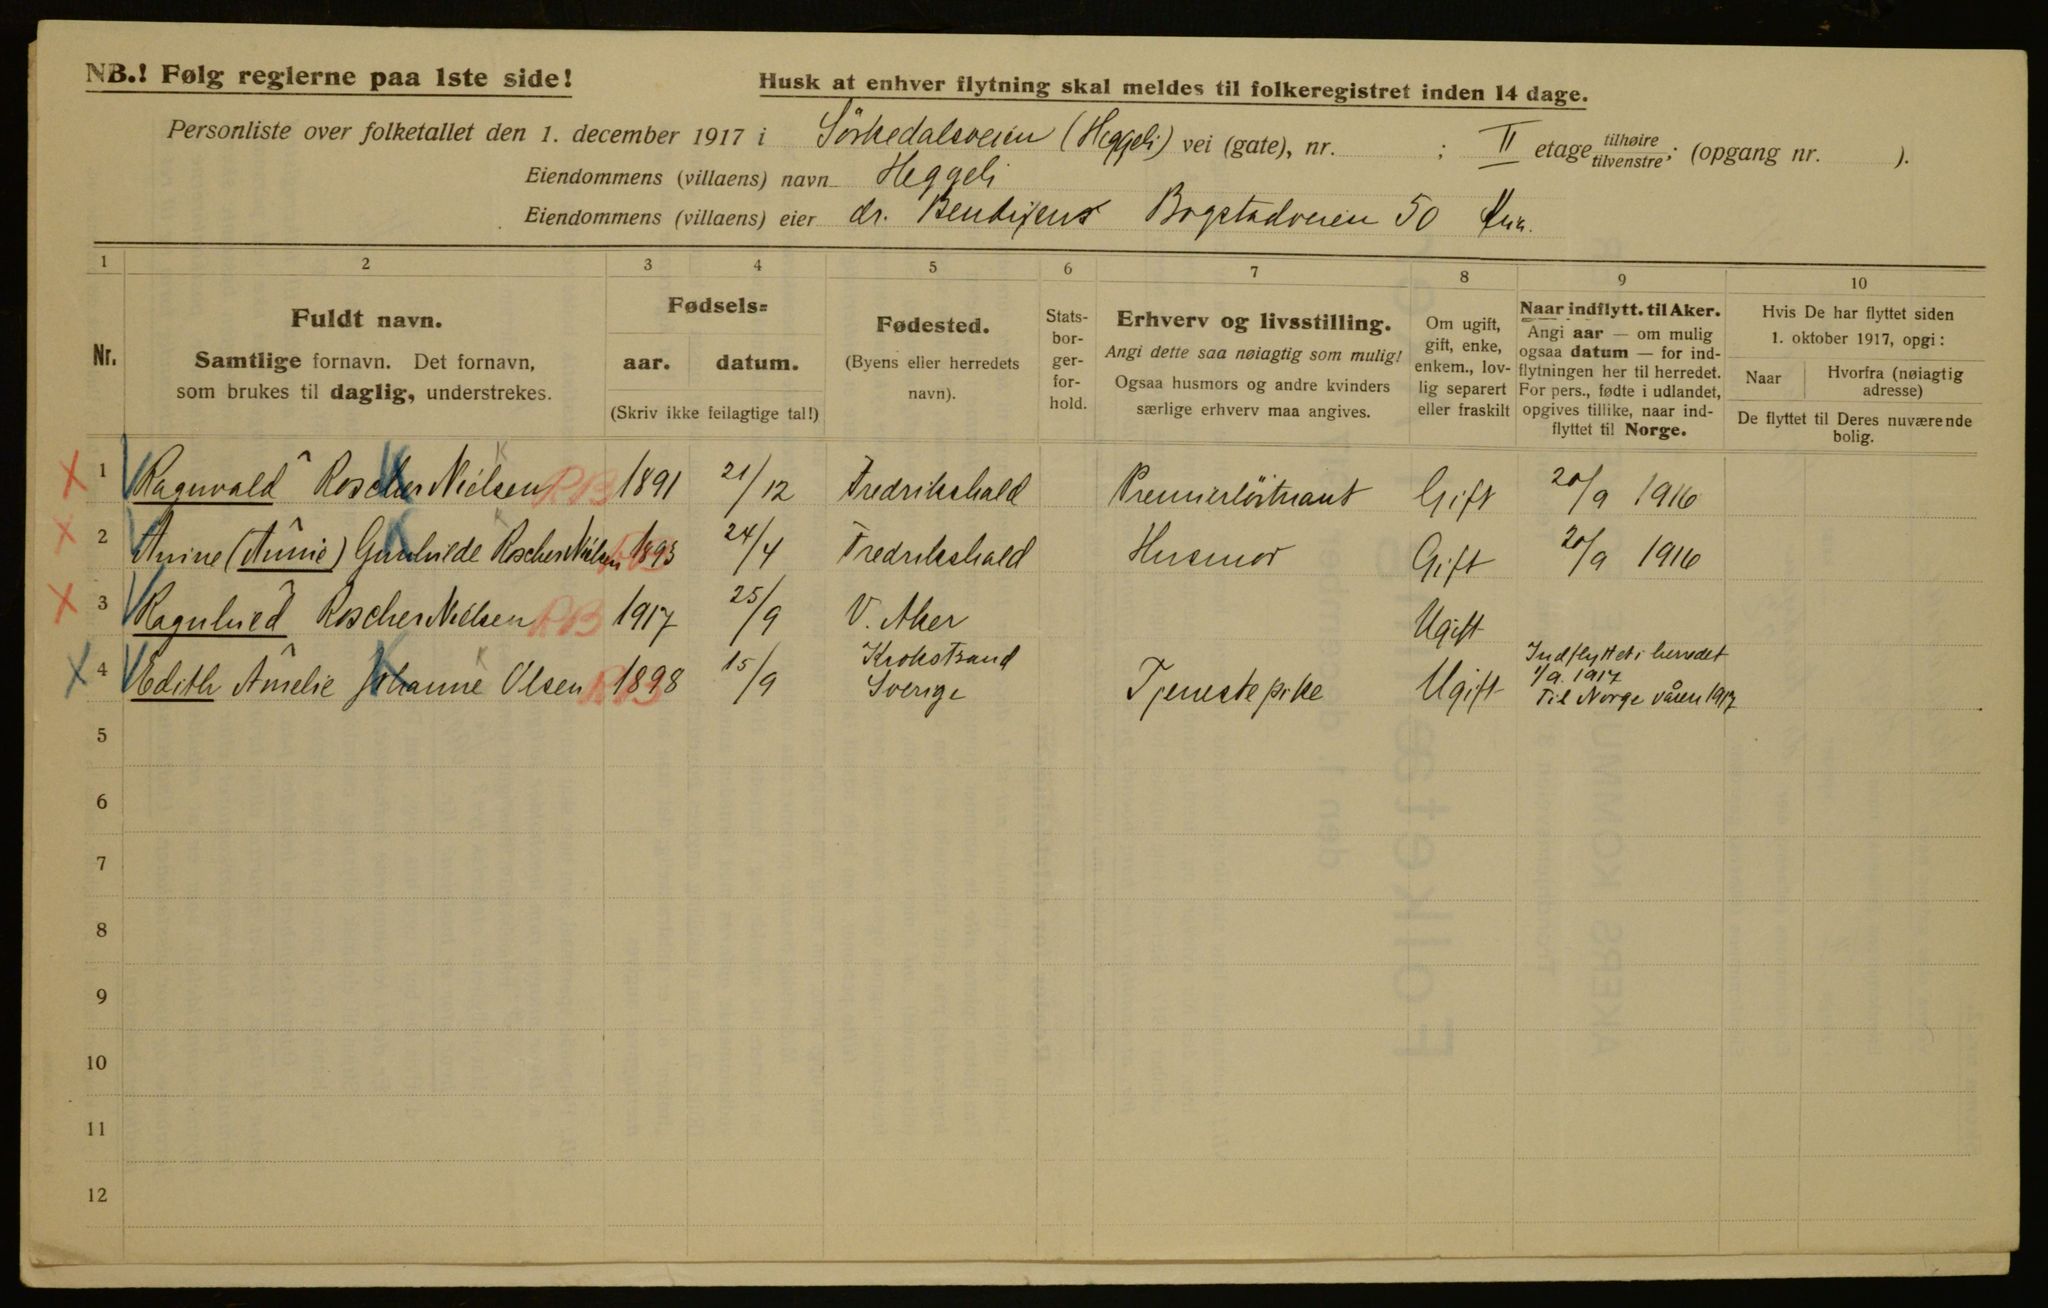 NB.! Følg reglerne paa 1ste side!
Husk at enhver flytning skal meldes til folkeregistret inden 14 dage.
Personliste over folketallet den 1. december 1917 i Sörkedalsveien (Heggeli) vei (gate), nr. ; II etage tilhøire tilvenstre; (opgang nr. ).
Eiendommens (villaens) navn Heggeli
Eiendommens (villaens) eier dr. Bendixens Bogstadveien 50
1 2 3 4 5 6 7 8 9 10
Nr.
Fuldt navn.
Samtlige fornavn. Det fornavn,
som brukes til daglig, understrekes.
Fødsels=
aar. datum.
(Skriv ikke feilagtige tal!)
Fødested.
(Byens eller herredets
navn).
Stats-
bor-
ger-
for-
hold.
Erhverv og livsstilling.
Angi dette saa nøiagtig som mulig!
Ogsaa husmors og andre kvinders
særlige erhverv maa angives.
Om ugift,
gift, enke,
enkem., lov-
lig separert
eller fraskilt
Naar indflytt. til Aker.
Angi aar — om mulig
ogsaa datum — for ind-
flytningen her til herredet.
For pers., fødte i udlandet,
opgives tillike, naar ind-
flyttet til Norge.
Hvis De har flyttet siden
1. oktober 1917, opgi:
Naar
Hvorfra (nøiagtig
adresse)
De flyttet til Deres nuværende
bolig.
1 Ragnvald Roscher Nielsen RB 1891 21/12 Fredrikshald Premierlöitnant Gift 20/9 1916
2 Anine (Annie) Gunhilde Roscher Nielsen RB 1893 24/4 Fredrikshald Husmor Gift 20/9 1916
3 Ragnhild Roscher Nielsen RB 1917 25/9 V. Aker Ugift
4 Edith Amelie Johanne Olsen RB 1898 15/9 Krokstrand Sverige Tjenestepike Ugift Indflyttet i herredet 1/9 1917 Til Norge våren 1917
5
6
7
8
9
10
11
12